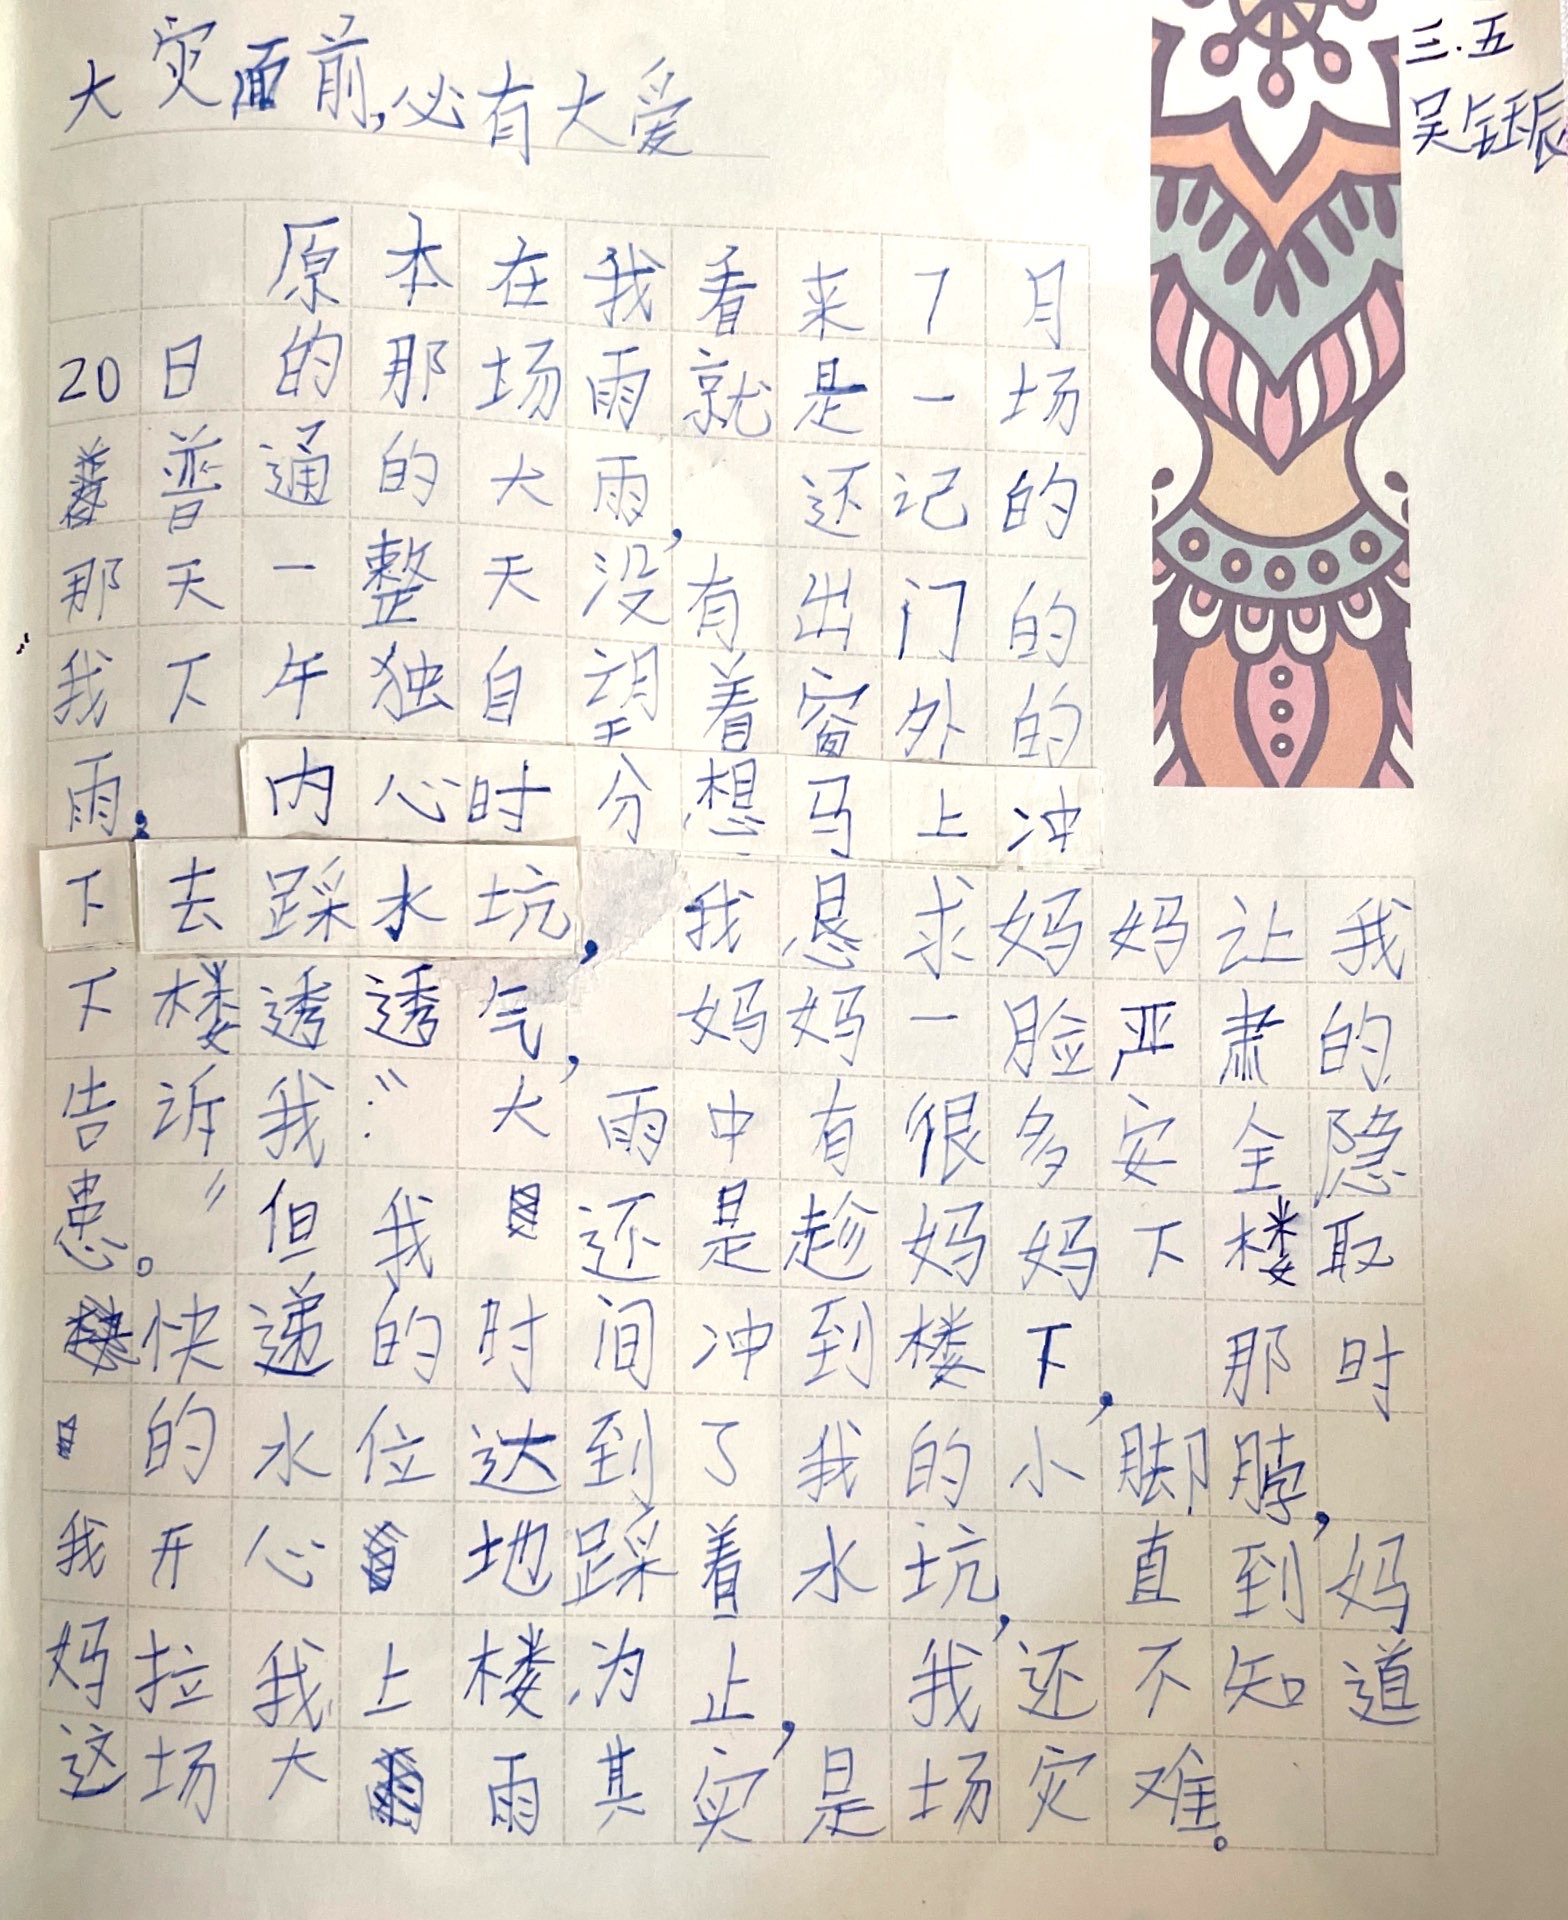 三.五
吴钰振
大灾面前,必有大爱
原本在我看来7月
20日的那场雨就是一场
普通的大雨,还记的
那天一整天没有出门的
我下午独自望着窗外的
雨,内心时分想马上冲
下去踩水坑,我恳求妈妈让我
下楼透透气,妈妈一脸严肃的
告诉我:"大雨中有很多安全隐
患。"但我还是趁妈妈下楼取
快递的时间冲到楼下,那时
的水位达到了我的小脚脖,
我开心地踩着水坑,直到妈
妈拉我上楼为止,我还不知道
这场大雨其实是场灾难。